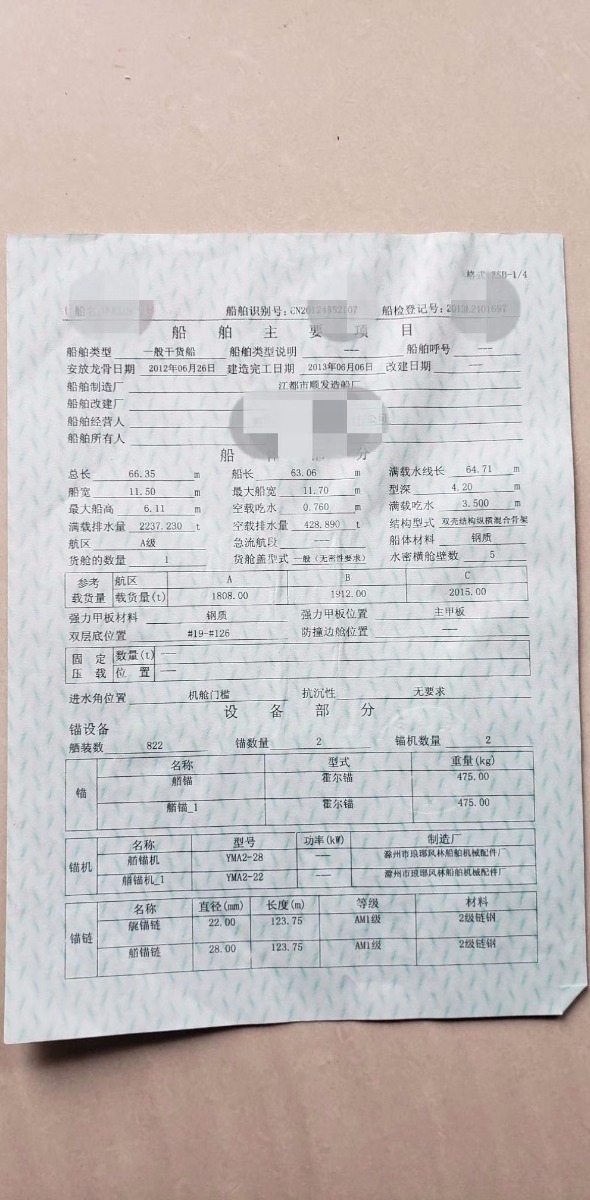 格式 ZSB-1/4
船舶识别号:CN20124852107 船检登记号:2013L2101697
船舶主要项目
船舶类型 一般干货船 船舶类型说明 —— 船舶呼号 ——
安放龙骨日期 2012年06月26日 建造完工日期 2013年06月06日 改建日期 ——
船舶制造厂 江都市顺发造船厂
船舶改建厂
船舶经营人
船舶所有人
船 分
总长 66.35 m 船长 63.06 m 满载水线长 64.71 m
船宽 11.50 m 最大船宽 11.70 m 型深 4.20 m
最大船高 6.11 m 空载吃水 0.760 m 满载吃水 3.500 m
满载排水量 2237.230 t 空载排水量 428.890 t 结构型式 双壳结构纵横混合骨架
航区 A级 急流航段 —— 船体材料 钢质
货舱的数量 1 货舱盖型式 一般（无密性要求） 水密横舱壁数 5
参考载货量 航区 A B C
载货量(t) 1808.00 1912.00 2015.00
强力甲板材料 钢质 强力甲板位置 主甲板
双层底位置 #19-#126 防撞边舱位置 ——
固定压载 数量(t) ——
位置 ——
进水角位置 机舱门槛 抗沉性 无要求
设备部分
锚设备
舾装数 822 锚数量 2 锚机数量 2
锚 名称 型式 重量(kg)
艏锚 霍尔锚 475.00
艏锚_1 霍尔锚 475.00
锚机 名称 型号 功率(kW) 制造厂
艏锚机 YMA2-28 —— 滁州市琅琊风林船舶机械配件厂
艏锚机_1 YMA2-22 —— 滁州市琅琊风林船舶机械配件厂
锚链 名称 直径(mm) 长度(m) 等级 材料
艉锚链 22.00 123.75 AM1级 2级链钢
艏锚链 28.00 123.75 AM1级 2级链钢